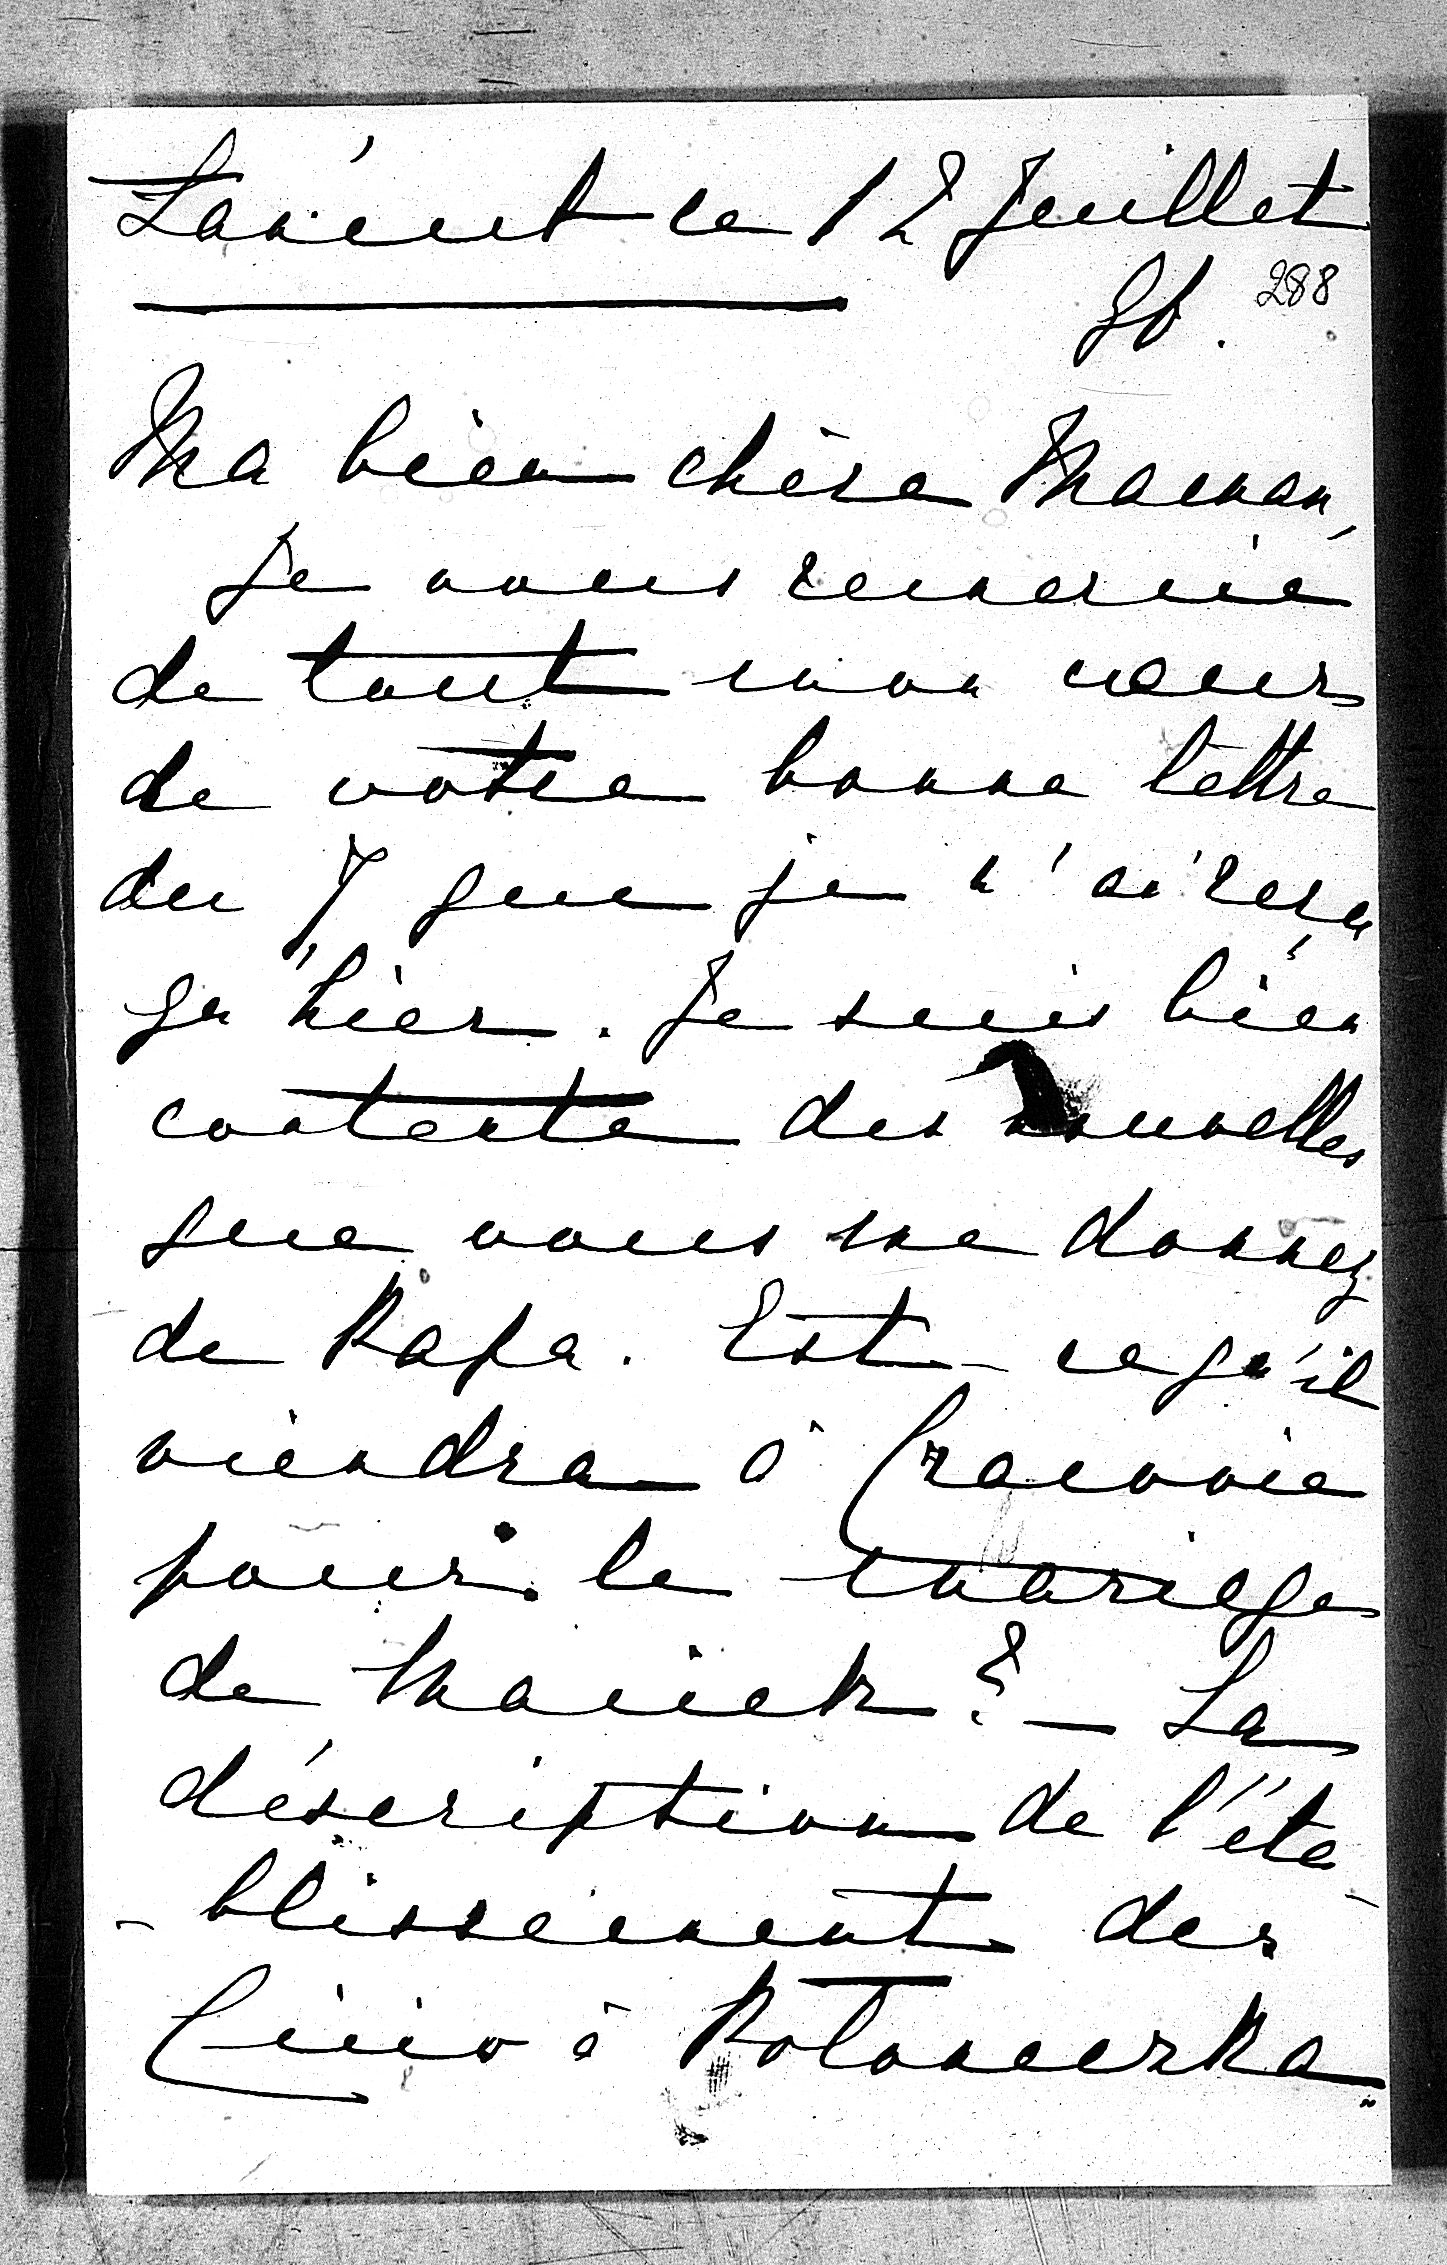 Łańcut le 12 Juillet
96. 288
Ma bien chère Maman,
Je vous remercie
de tout mon coeur
de votre bonne lettre
du 7 que je n'ai reçu
qu'hier. Je suis bien
contente des nouvelles
que vous me donnez
de Papa. Est-ce qu'il
viendra à Cracovie
pour le mariage
de Maciek? - La
déscription de l'éta-
-blissement des
à